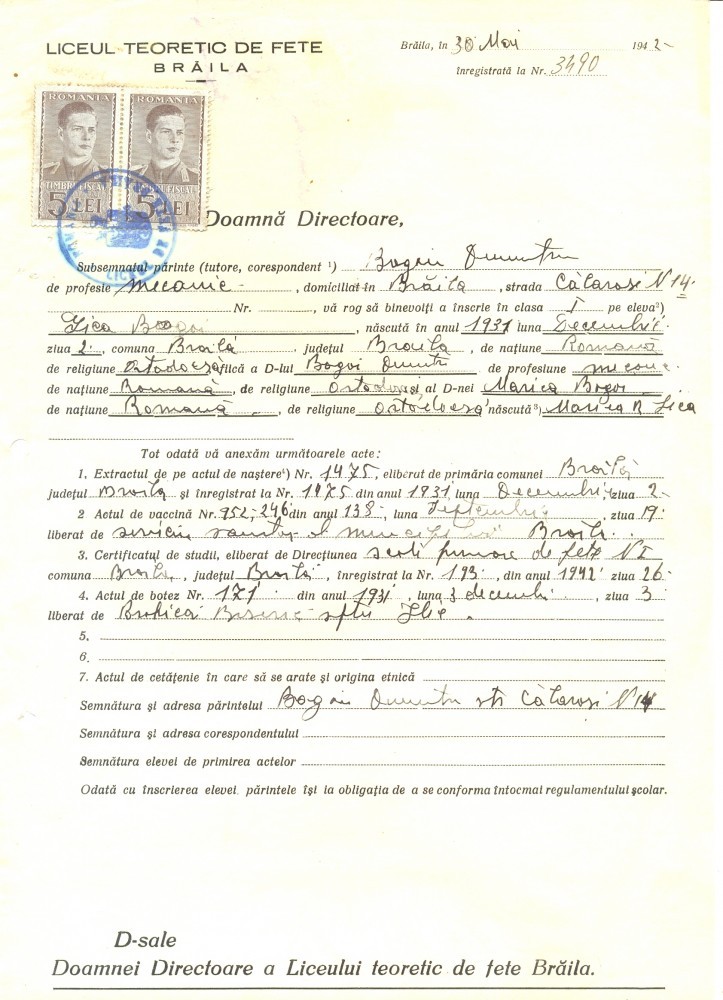 LICEUL TEORETIC DE FETE
BRĂILA
Brăila, în 30 Mai 1942-
înregistrată la Nr. 3490
ROMANIA ROMANIA
TIMBRU FISCAL TIMBRU FISCAL
5 LEI 5 LEI
Doamnă Directoare,
Subsemnatul părinte (tutore, corespondent ¹) Bogoi Dumitru
de profesie mecanic, domiciliat în Brăila, strada Călarasi N 14
Nr. , vă rog să binevoiți a înscrie în clasa I pe eleva²)
Lica Bogoi, născută în anul 1931 luna Decembrie
ziua 2, comuna Braila județul Braila, de națiune Romană
de religiune ortodoxă fiică a D-lui Bogoi Dumitru de profesiune mecanic
de națiune Romană, de religiune ortodoxă și al D-nei Marica Bogoi
de națiune Romană, de religiune ortodoxă născută³) Marica R. Lica
Tot odată vă anexăm următoarele acte:
1. Extractul de pe actul de naștere⁴) Nr. 1475, eliberat de primăria comunei Braila
județul Braila și înregistrat la Nr. 1475 din anul 1931 luna Decembrie ziua 2-
2 Actul de vaccină Nr. 952,246 din anul 138, luna Septembrie, ziua 19
liberat de serviciu sanitar al municipiului Braila
3. Certificatul de studii, eliberat de Direcțiunea scoli primare de fete N I
comuna Braila, județul Braila, înregistrat la Nr. 193, din anul 1942 ziua 26
4. Actul de botez Nr. 171 din anul 1931, luna 3 decembrie, ziua 3
liberat de Biserica sftu Ilie.
5.
6.
7. Actul de cetățenie în care să se arate și origina etnică
Semnătura și adresa părintelui Bogoi Dumitru str Călarasi N 14
Semnătura și adresa corespondentului
Semnătura elevei de primirea actelor
Odată cu înscrierea elevei părintele își ia obligația de a se conforma întocmai regulamentului școlar.
D-sale
Doamnei Directoare a Liceului teoretic de fete Brăila.